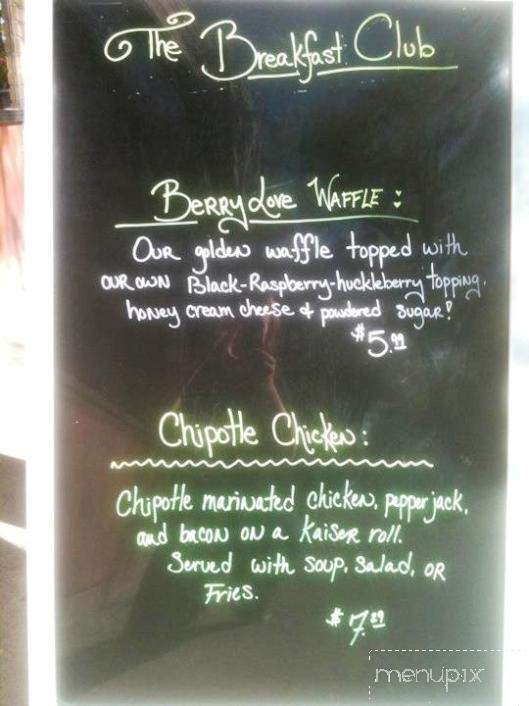 The Breakfast Club
Berry Love Waffle:
Our golden waffle topped with
our own Black-Raspberry-huckleberry topping,
honey cream cheese & powdered sugar!
$5.99
Chipotle Chicken:
Chipotle marinated chicken, pepper jack,
and bacon on a Kaiser roll.
Served with soup, salad, or
Fries.
$7.89
menupix